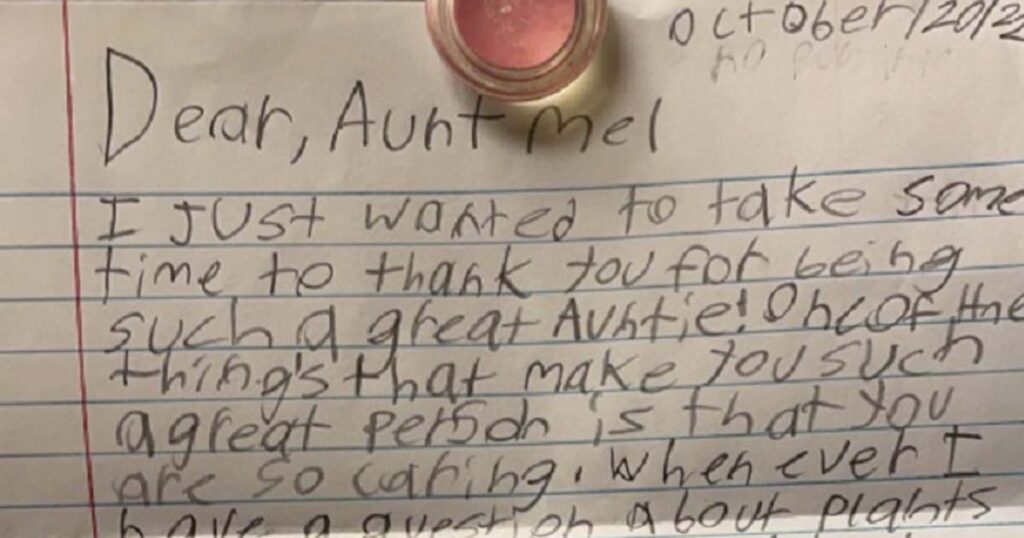 October/20/2
Dear, Aunt Mel
I Just wanted to take some
time to thank you for being
such a great Auntie! One of the
thing's that make you such
a great person is that you
are so caring. When ever I
have a question about plants